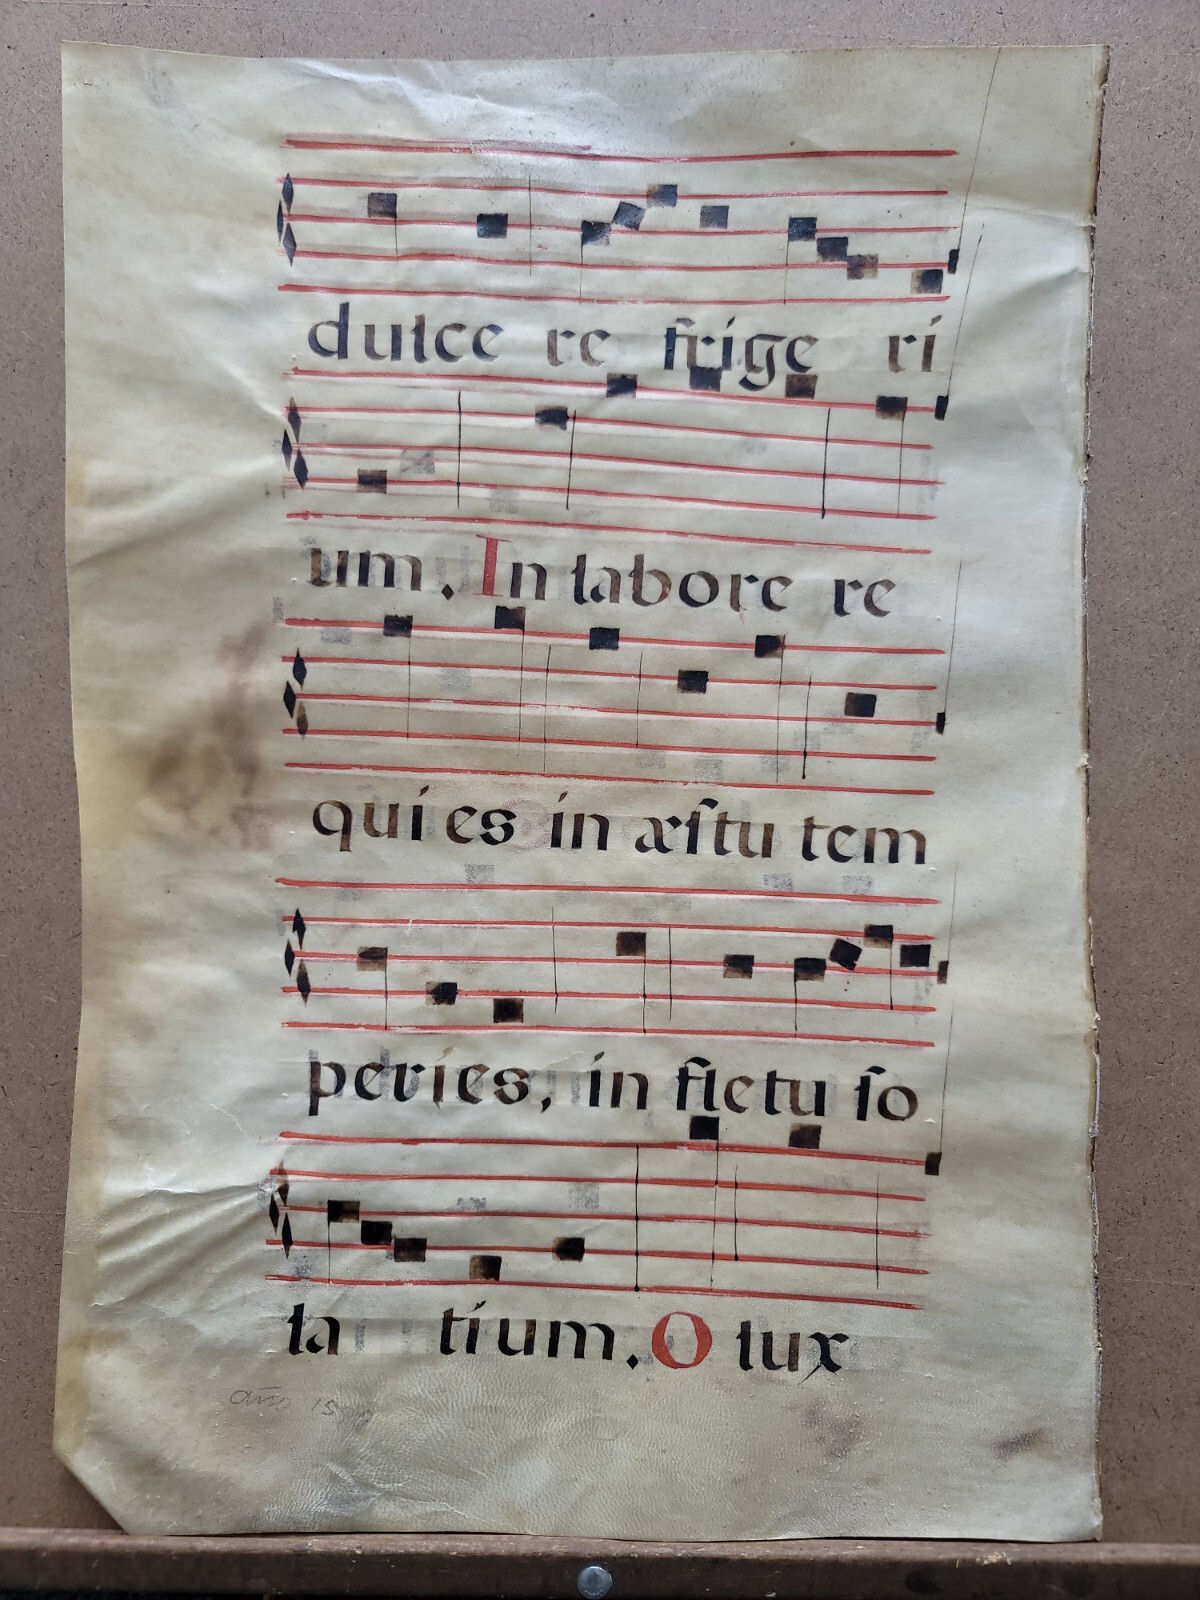 dulce re frige ri
um. In labore re
qui es in æſtu tem
peries, in fletu ſo
la tium. O lux
año 15